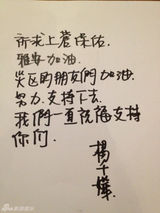 祈求上蒼保佑
雅安加油.
災区的朋友們加油.
努力支持下去.
我們一直說為支持
你们.
楊千嬅